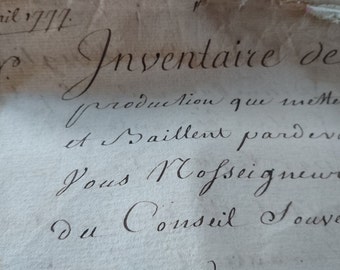 ail 1777.
Inventaire de
production que mette
et Baillent pardeva
Vous Nosseigneur
du Conseil Souve